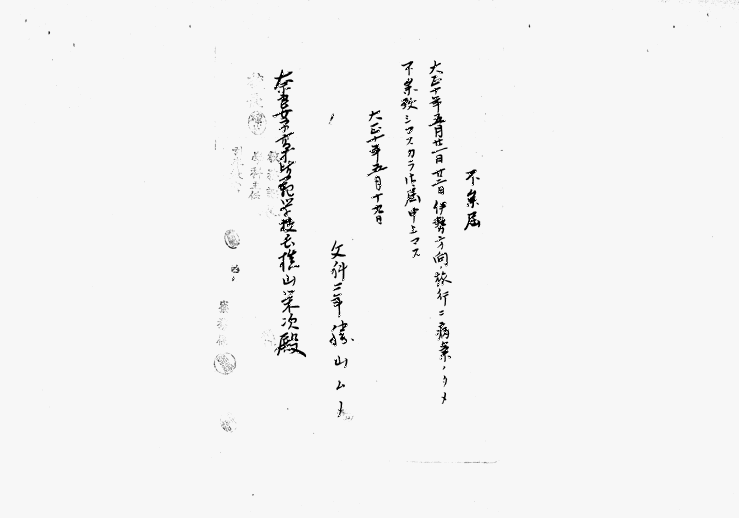 不参届
大正十年五月廿一日廿二日伊勢方向ノ旅行ニ病気ノタメ
不参致シマスカラ此段御届申上マス
大正十年五月十九日
文科二年 勝山ムメ
奈良女子高等師範学校長槇山栄次殿